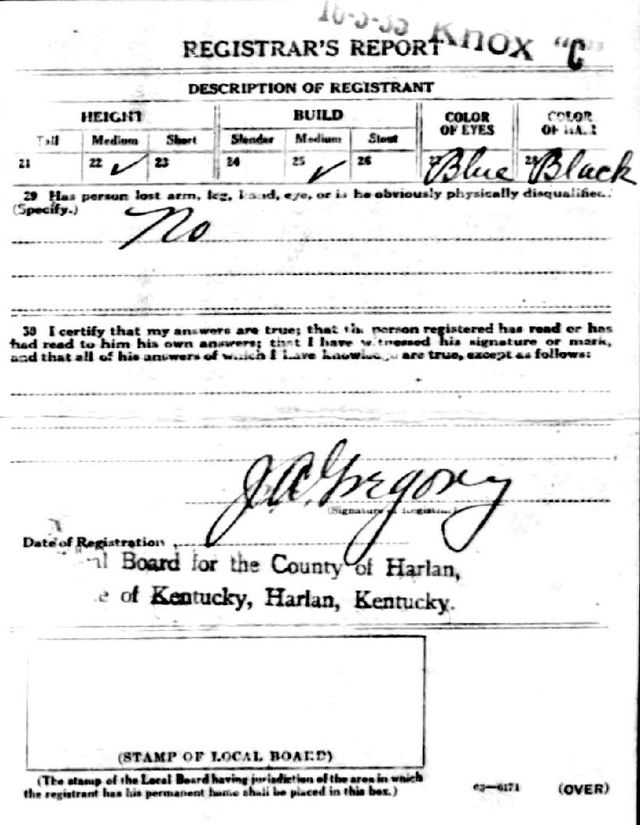 16-3-35 Knox "C"
REGISTRAR'S REPORT
DESCRIPTION OF REGISTRANT
HEIGHT BUILD COLOR OF EYES COLOR OF HAIR
Tall Medium Short Slender Medium Stout
21 22 ✓ 23 24 25 ✓ 26 27 Blue 28 Black
29 Has person lost arm, leg, hand, eye, or is he obviously physically disqualified?
(Specify.)
No
30 I certify that my answers are true; that the person registered has read or has
had read to him his own answers; that I have witnessed his signature or mark,
and that all of his answers of which I have knowledge are true, except as follows:
J. A. Gregory
(Signature of Registrar)
Date of Registration
Board for the County of Harlan,
of Kentucky, Harlan, Kentucky.
(STAMP OF LOCAL BOARD)
(The stamp of the Local Board having jurisdiction of the area in which
the registrant has his permanent home shall be placed in this box.)
63—6171 (OVER)